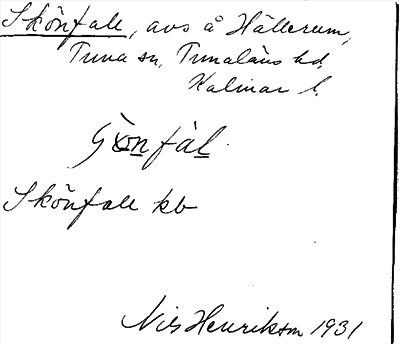 Skönfall, avs å Hällerum,
Tuna sn, Tunaläns hd,
Kalmar l.
Skönfall kb
Nils Henrikson 1931